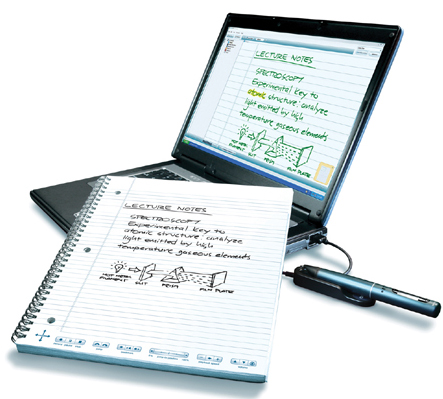 LECTURE NOTES
SPECTROSCOPY
Experimental key to
atomic structure: analyze
light emitted by high
temperature gaseous elements
SLIT
PRISM
FILM PLATE
LECTURE NOTES
SPECTROSCOPY
Experimental key to
atomic structure analyze
light emitted by high
temperature gaseous elements
HOT METAL
FILAMENT
SLIT
PRISM
FILM PLATE